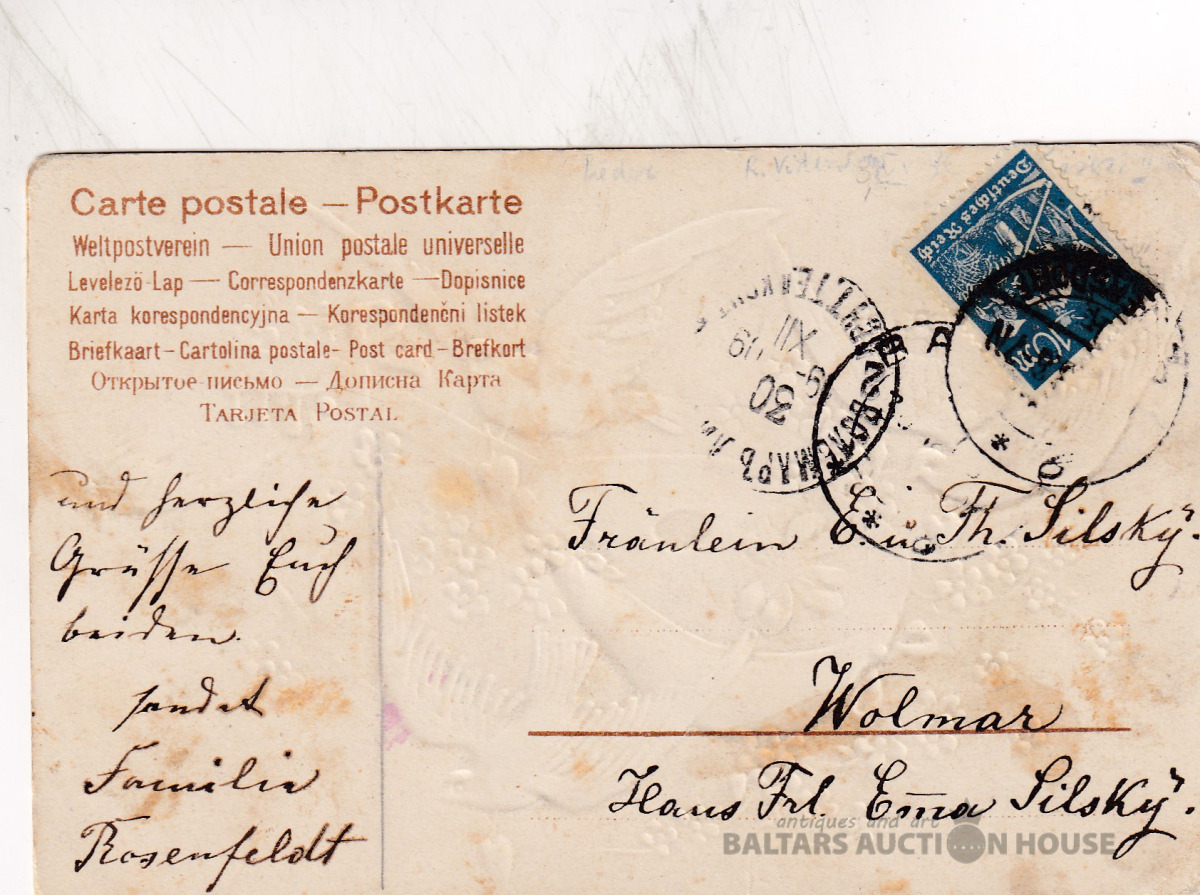 Carte postale — Postkarte
Weltpostverein — Union postale universelle
Levelezö-Lap — Correspondenzkarte — Dopisnice
Karta korespondencyjna — Korespondenčni listek
Briefkaart - Cartolina postale - Post card - Brefkort
Открытое письмо — Дописна Карта
Tarjeta Postal
Deutsches Reich
10
XII
30
und herzliche
Grüsse Euch
beiden.
sendet
Familie
Rosenfeldt
Fräulein E. u. Th. Silsky.
Wolmar
Haus Frl. Em̅a Silsky.
antiques and art
BALTARS AUCTION HOUSE